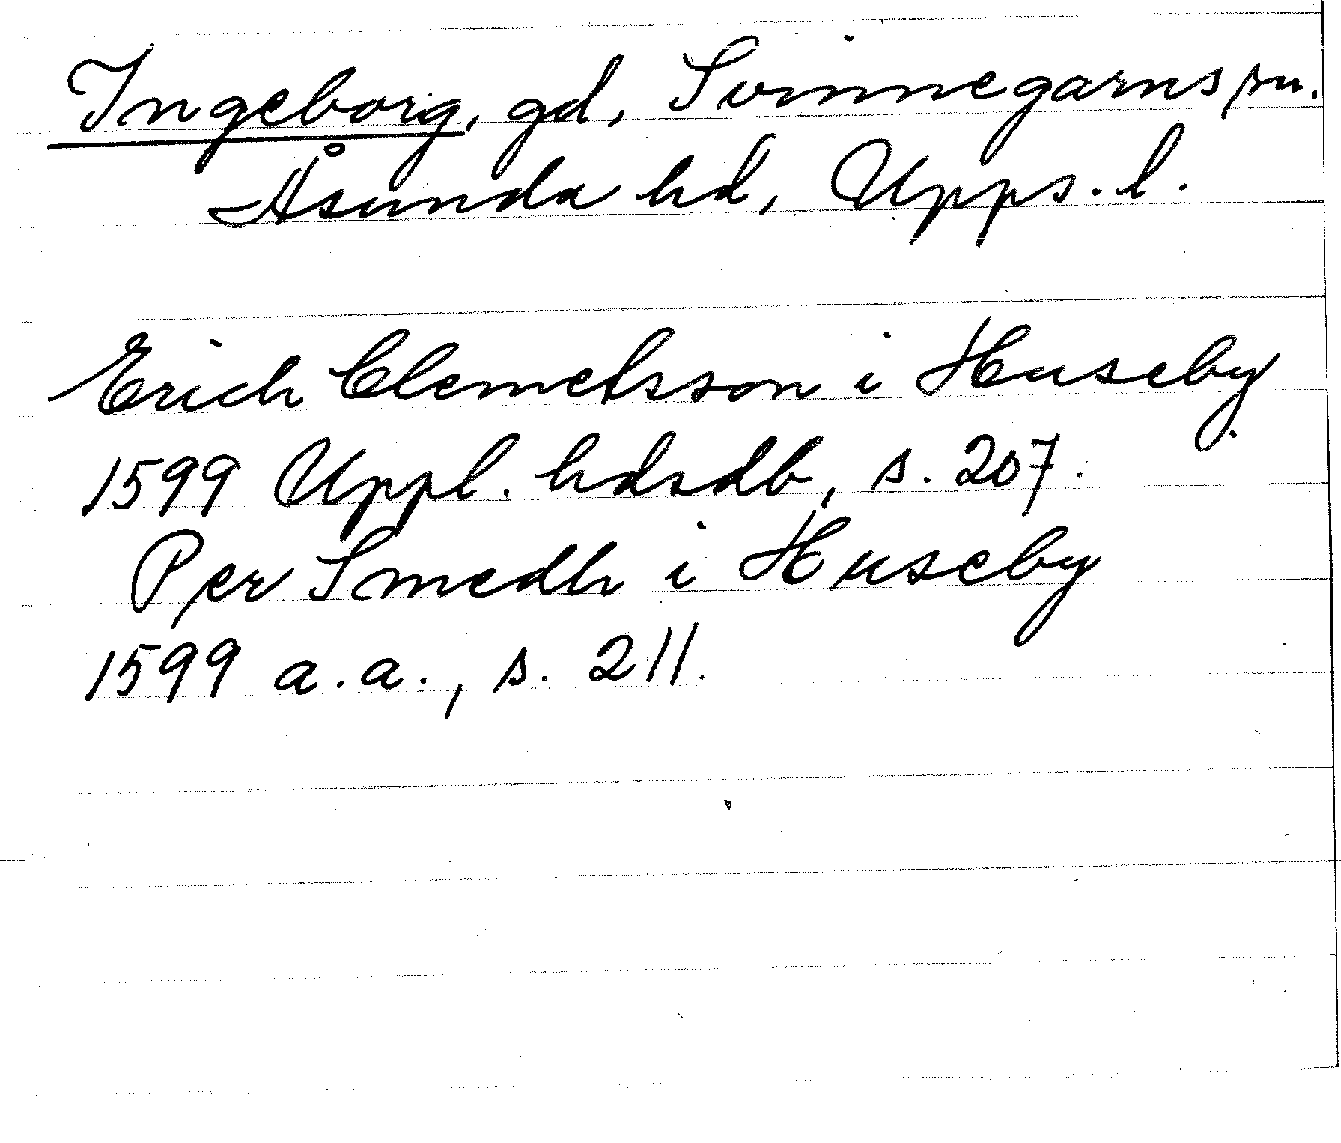 Ingeborg, gd, Svinnegarns sn.
Åsunda hd, Upps. l.
Erich Clemetsson i Huseby
1599 Uppl. hdsdb, s. 207.
Per Smedh i Huseby
1599 a.a., s. 211.